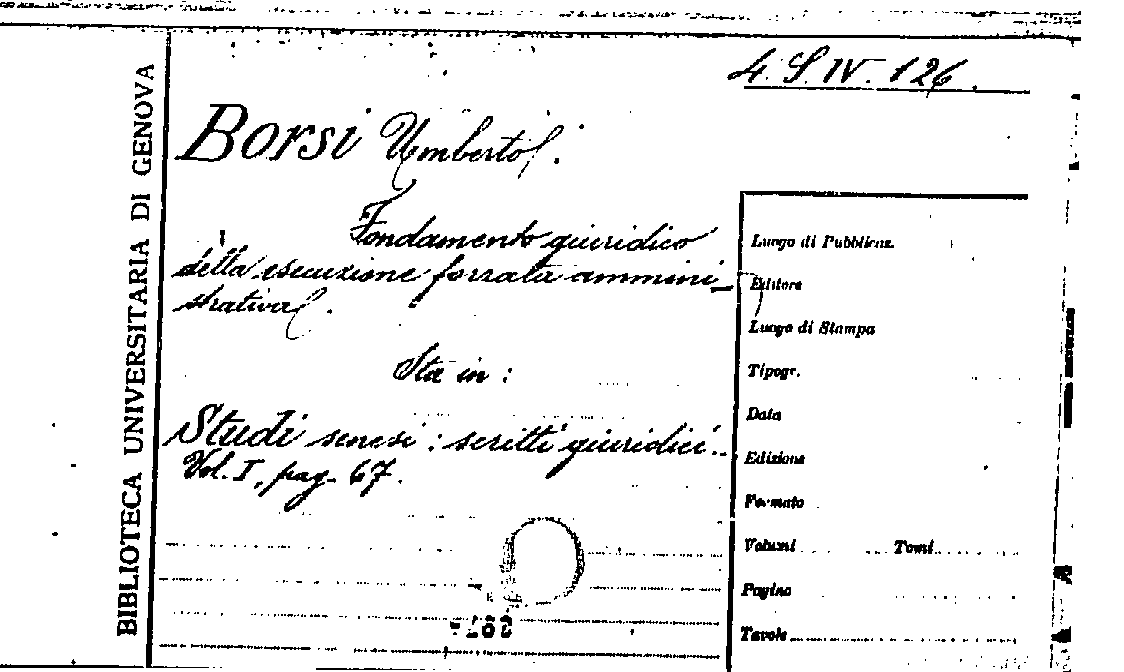 BIBLIOTECA UNIVERSITARIA DI GENOVA
4. S. IV. 126.
Borsi Umberto.
Fondamento giuridico
della esecuzione forzata ammini-
strativa.
Sta in:
Studi senesi: scritti giuridici..
Vol. I, pag. 67.
Luogo di Pubblicaz.
Editore
Luogo di Stampa
Tipogr.
Data
Edizione
Formato
Volumi Tomi
Pagine
Tavole